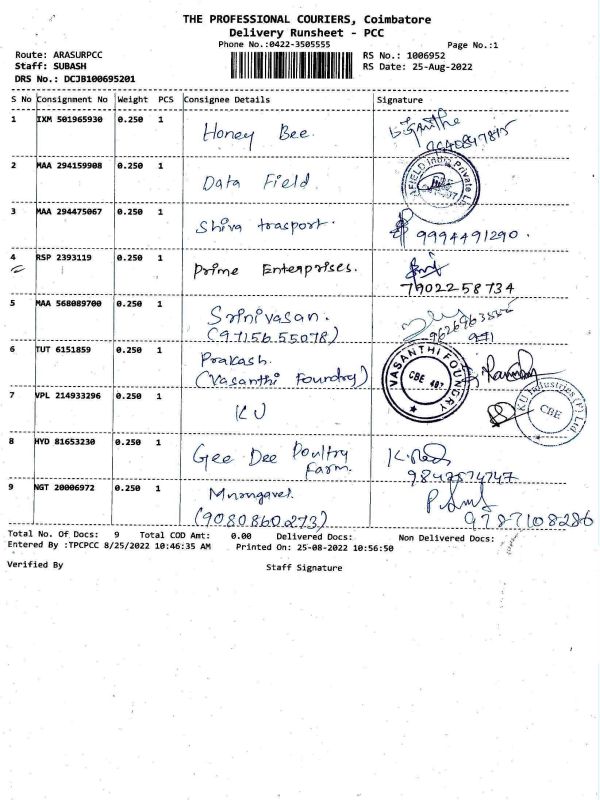 THE PROFESSIONAL COURIERS, Coimbatore
Delivery Runsheet - PCC
Phone No.:0422-3505555
Page No.:1
Route: ARASURPCC
RS No.: 1006952
Staff: SUBASH
RS Date: 25-Aug-2022
DRS No.: DCJB100695201
S No Consignment No Weight PCS Consignee Details Signature
1 IXM 501965930 0.250 1 Honey Bee.
2 MAA 294159908 0.250 1 Data Field.
3 MAA 294475067 0.250 1 Shiva trasport. 9994491290.
4 RSP 2393119 0.250 1 Prime Enterprises.
7902258734
5 MAA 568089700 0.250 1 Srinivasan.
(97156 55078)
6 TUT 6151859 0.250 1 Prakash.
(Vasanthi Foundry)
VASANTHI FOUNDRY
CBE 407
7 VPL 214933296 0.250 1 KU
KU Industries (P) Ltd.
CBE
8 HYD 81653230 0.250 1 Gee Dee Poultry
Farm.
9842574747
9 NGT 20006972 0.250 1
(9080860273) 9787108286
Total No. Of Docs: 9 Total COD Amt: 0.00 Delivered Docs: Non Delivered Docs:
Entered By :TPCPCC 8/25/2022 10:46:35 AM Printed On: 25-08-2022 10:56:50
Verified By Staff Signature